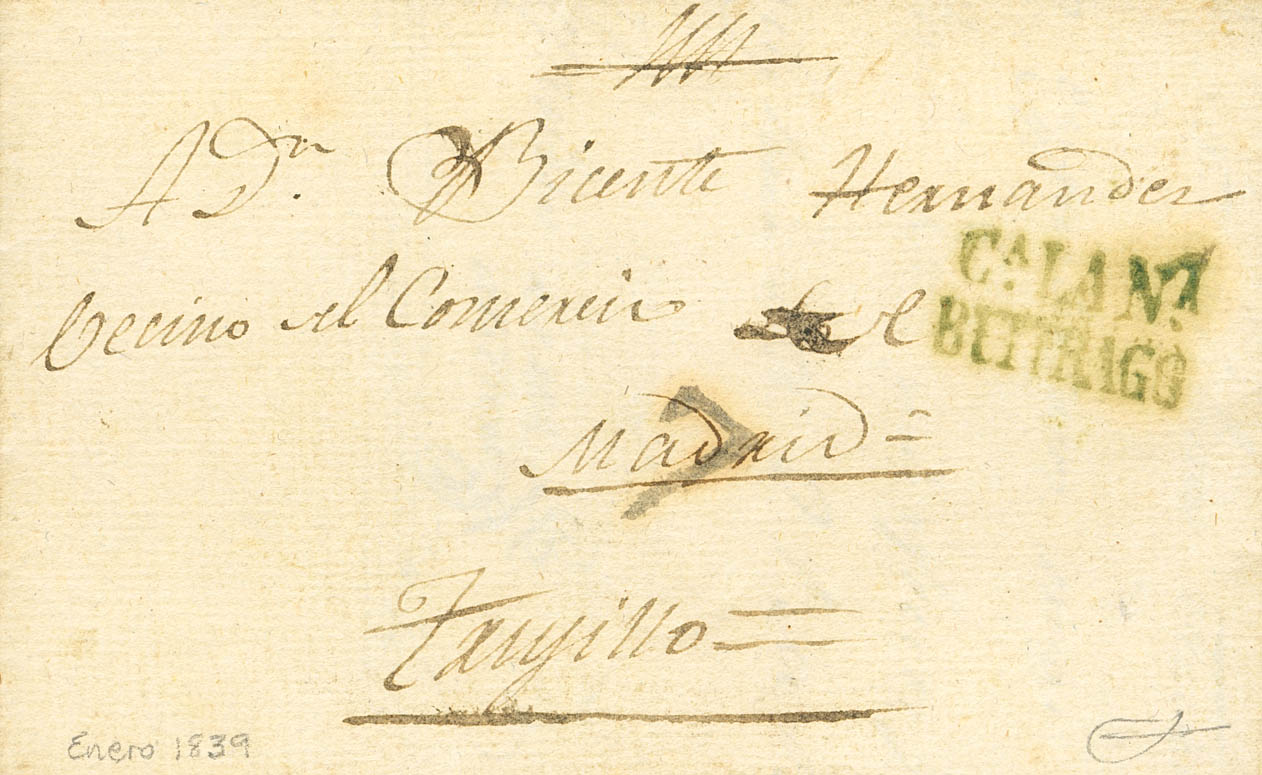 A Dn. Bicente Hernandez
Vecino del Comercio de
CA. LA NA.
BUITRAGO
Madrid =
7
Enero 1839